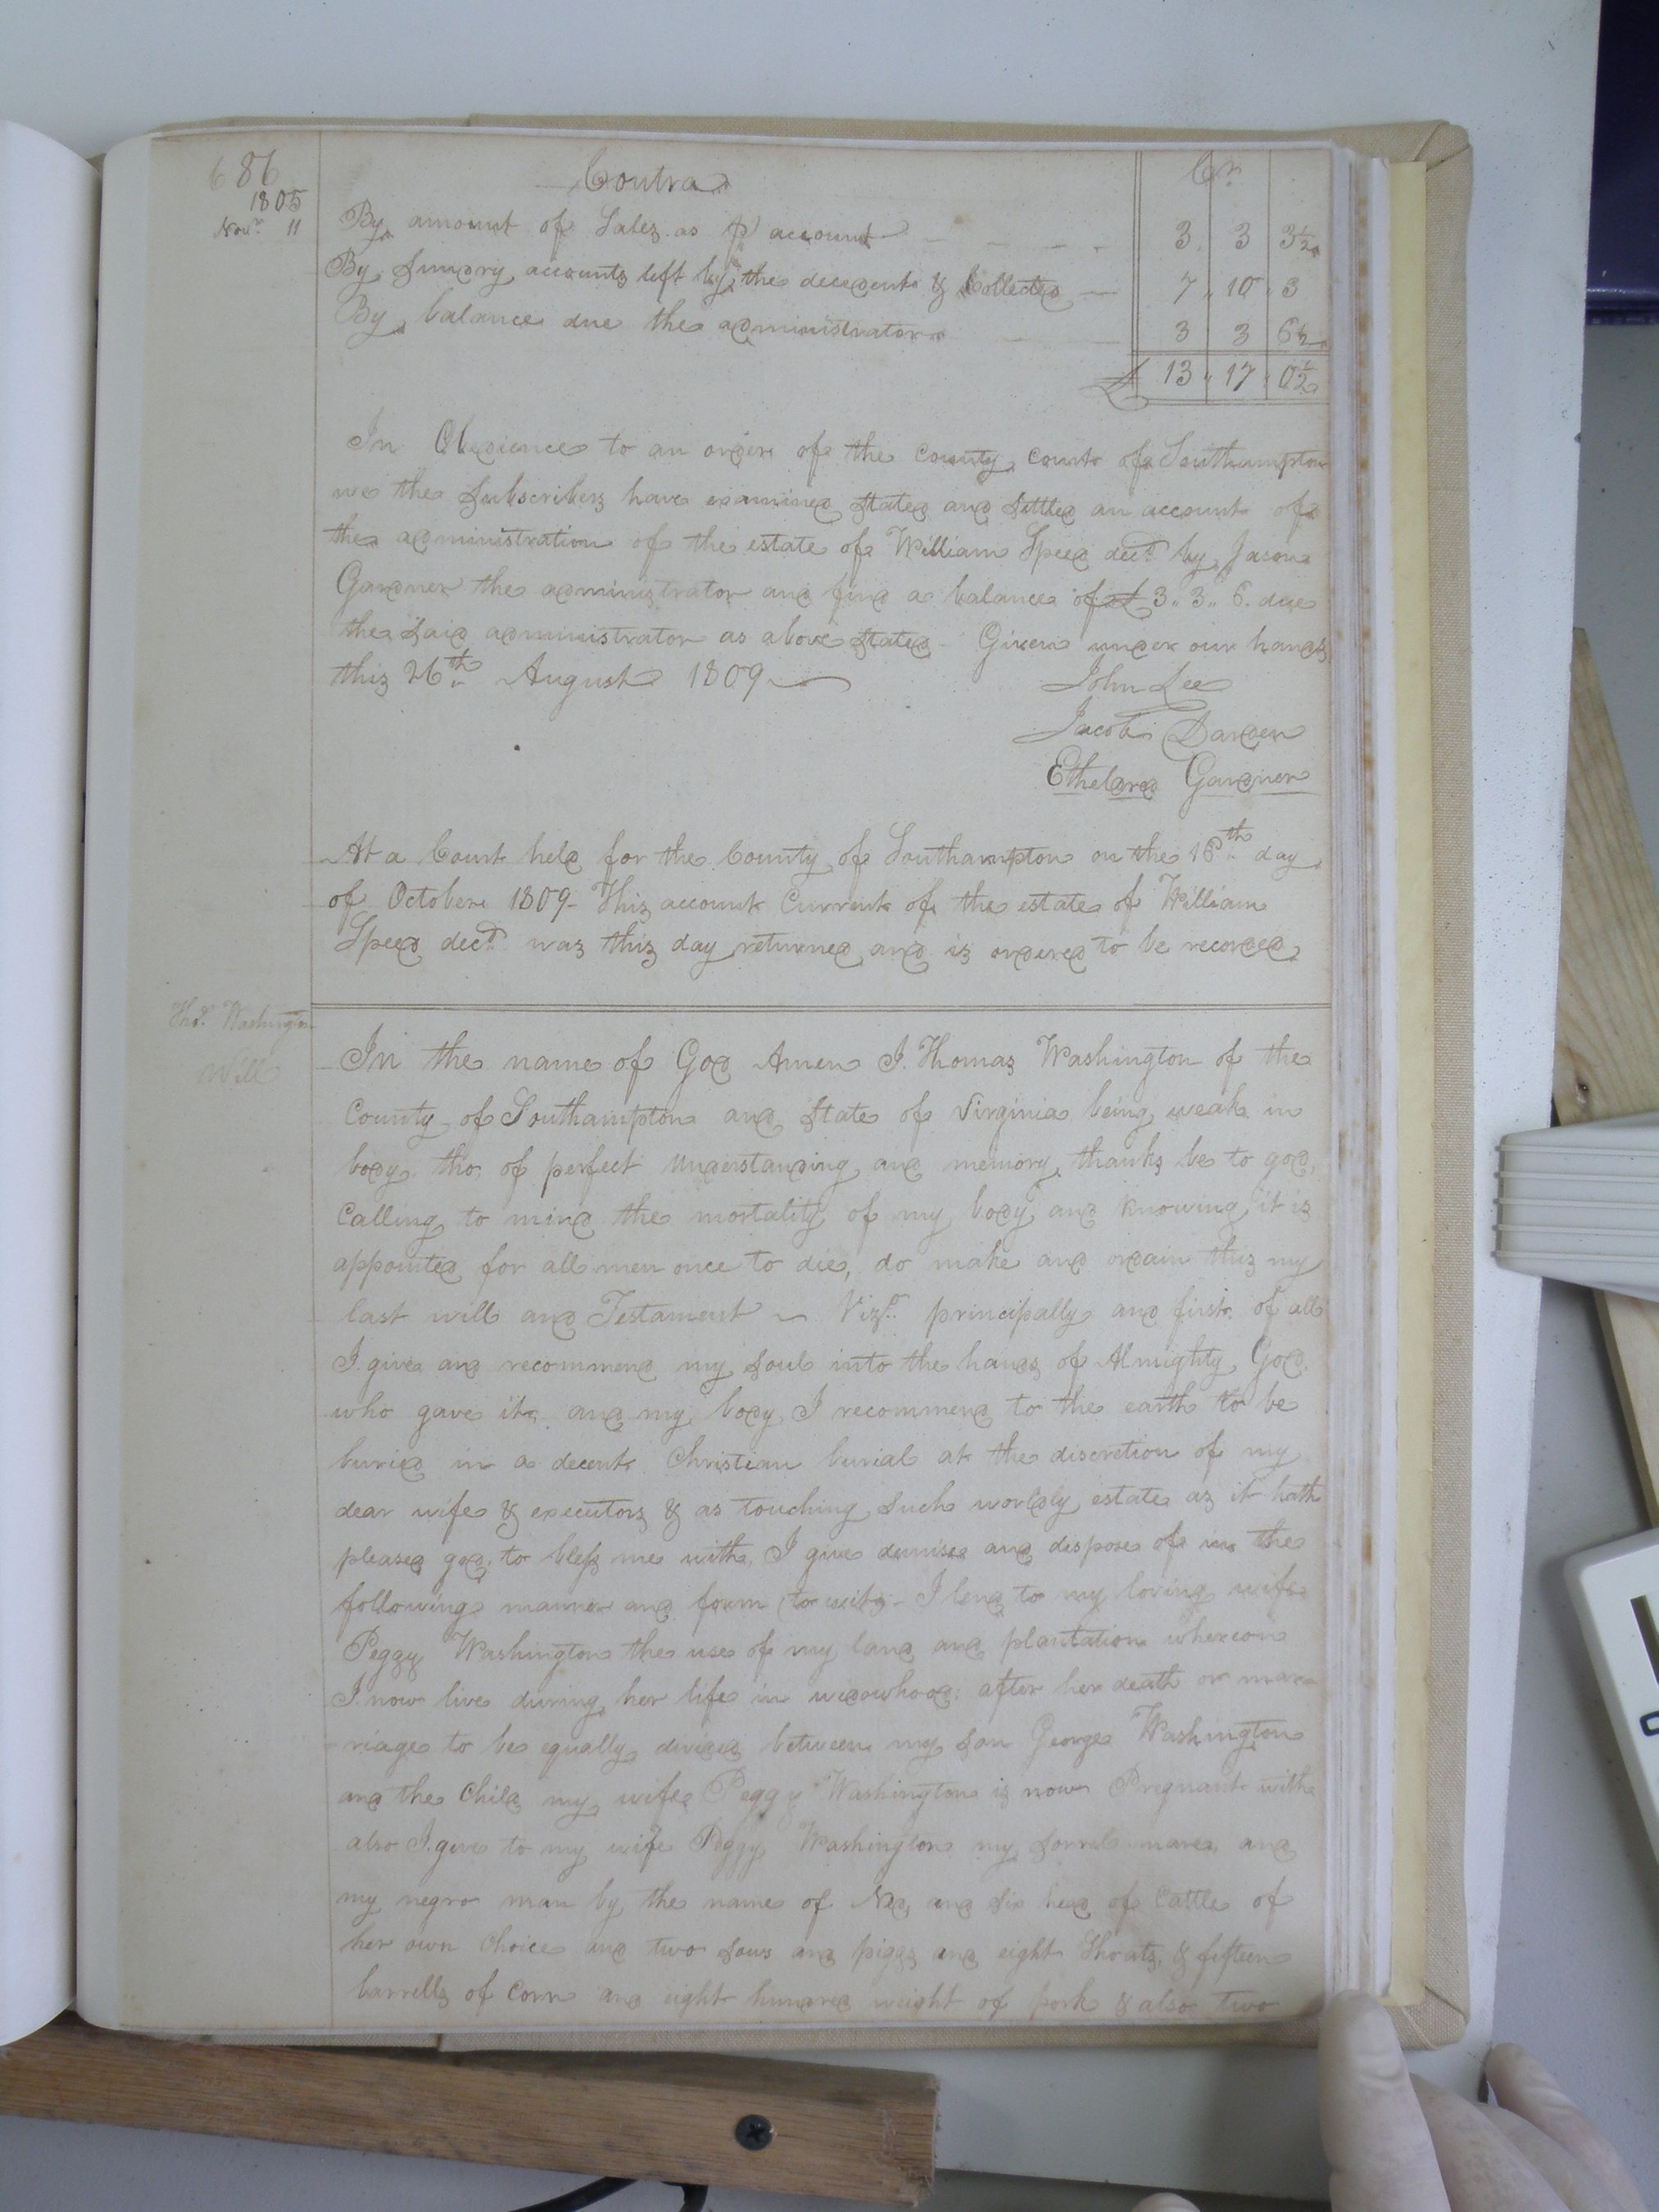 686
Contra Cr.
1805
Novr. 11 By amount of Sales as pr account 3 3 3½
By Sundry accounts left by the decedent & Collected 7 " 10 " 3
By balance due the administrator 3 3 6½
£ 13 " 17 " 0½
In Obedience to an order of the County Court of Southampton
we the Subscribers have examined Stated and Settled an account of
the administration of the estate of William Speed decd. by Jason
Gardner the administrator and find a balance of £ 3 " 3 " 6. due
the Said administrator as above Stated - Given under our hands
this 26th August 1809
John Lee
Jacob Darden
Etheldred Gardner
At a Court held for the County of Southampton on the 16th day
of October 1809 - This account Current of the estate of William
Speed decd. was this day returned and is ordered to be recorded
Thos. Washington
Will
In the name of God Amen I. Thomas Washington of the
County of Southampton and State of Virginia being weak in
body tho of perfect Understanding and memory thanks be to god,
Calling to mind the mortality of my body and Knowing it is
appointed for all men once to die, do make and ordain this my
last will and Testament Vizt. principally and first of all
I give and recommend my Soul into the hands of Almighty God
who gave it, and my body I recommend to the earth to be
buried in a decent Christian burial at the discretion of my
dear wife & executors & as touching Such worldly estate as it hath
pleased god to bless me with, I give demise and dispose of in the
following manner and form (to wit) - I lend to my loving wife
Peggy Washington the use of my land and plantation whereon
I now live during her life in widowhood: after her death or mar
riage to be equally divided between my Son George Washington
and the Child my wife Peggy Washington is now Pregnant with
also I give to my wife Peggy Washington my Sorrel mare, and
my negro man by the name of Ned, and Six head of Cattle of
her own Choice and two Sows and piggs and eight Shoats, & fifteen
barrells of Corn and eight hundred weight of pork & also two